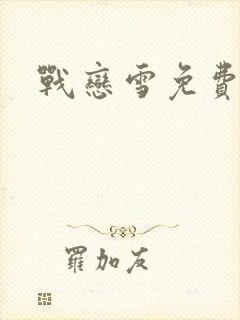 戰戀雪免費
羅加友